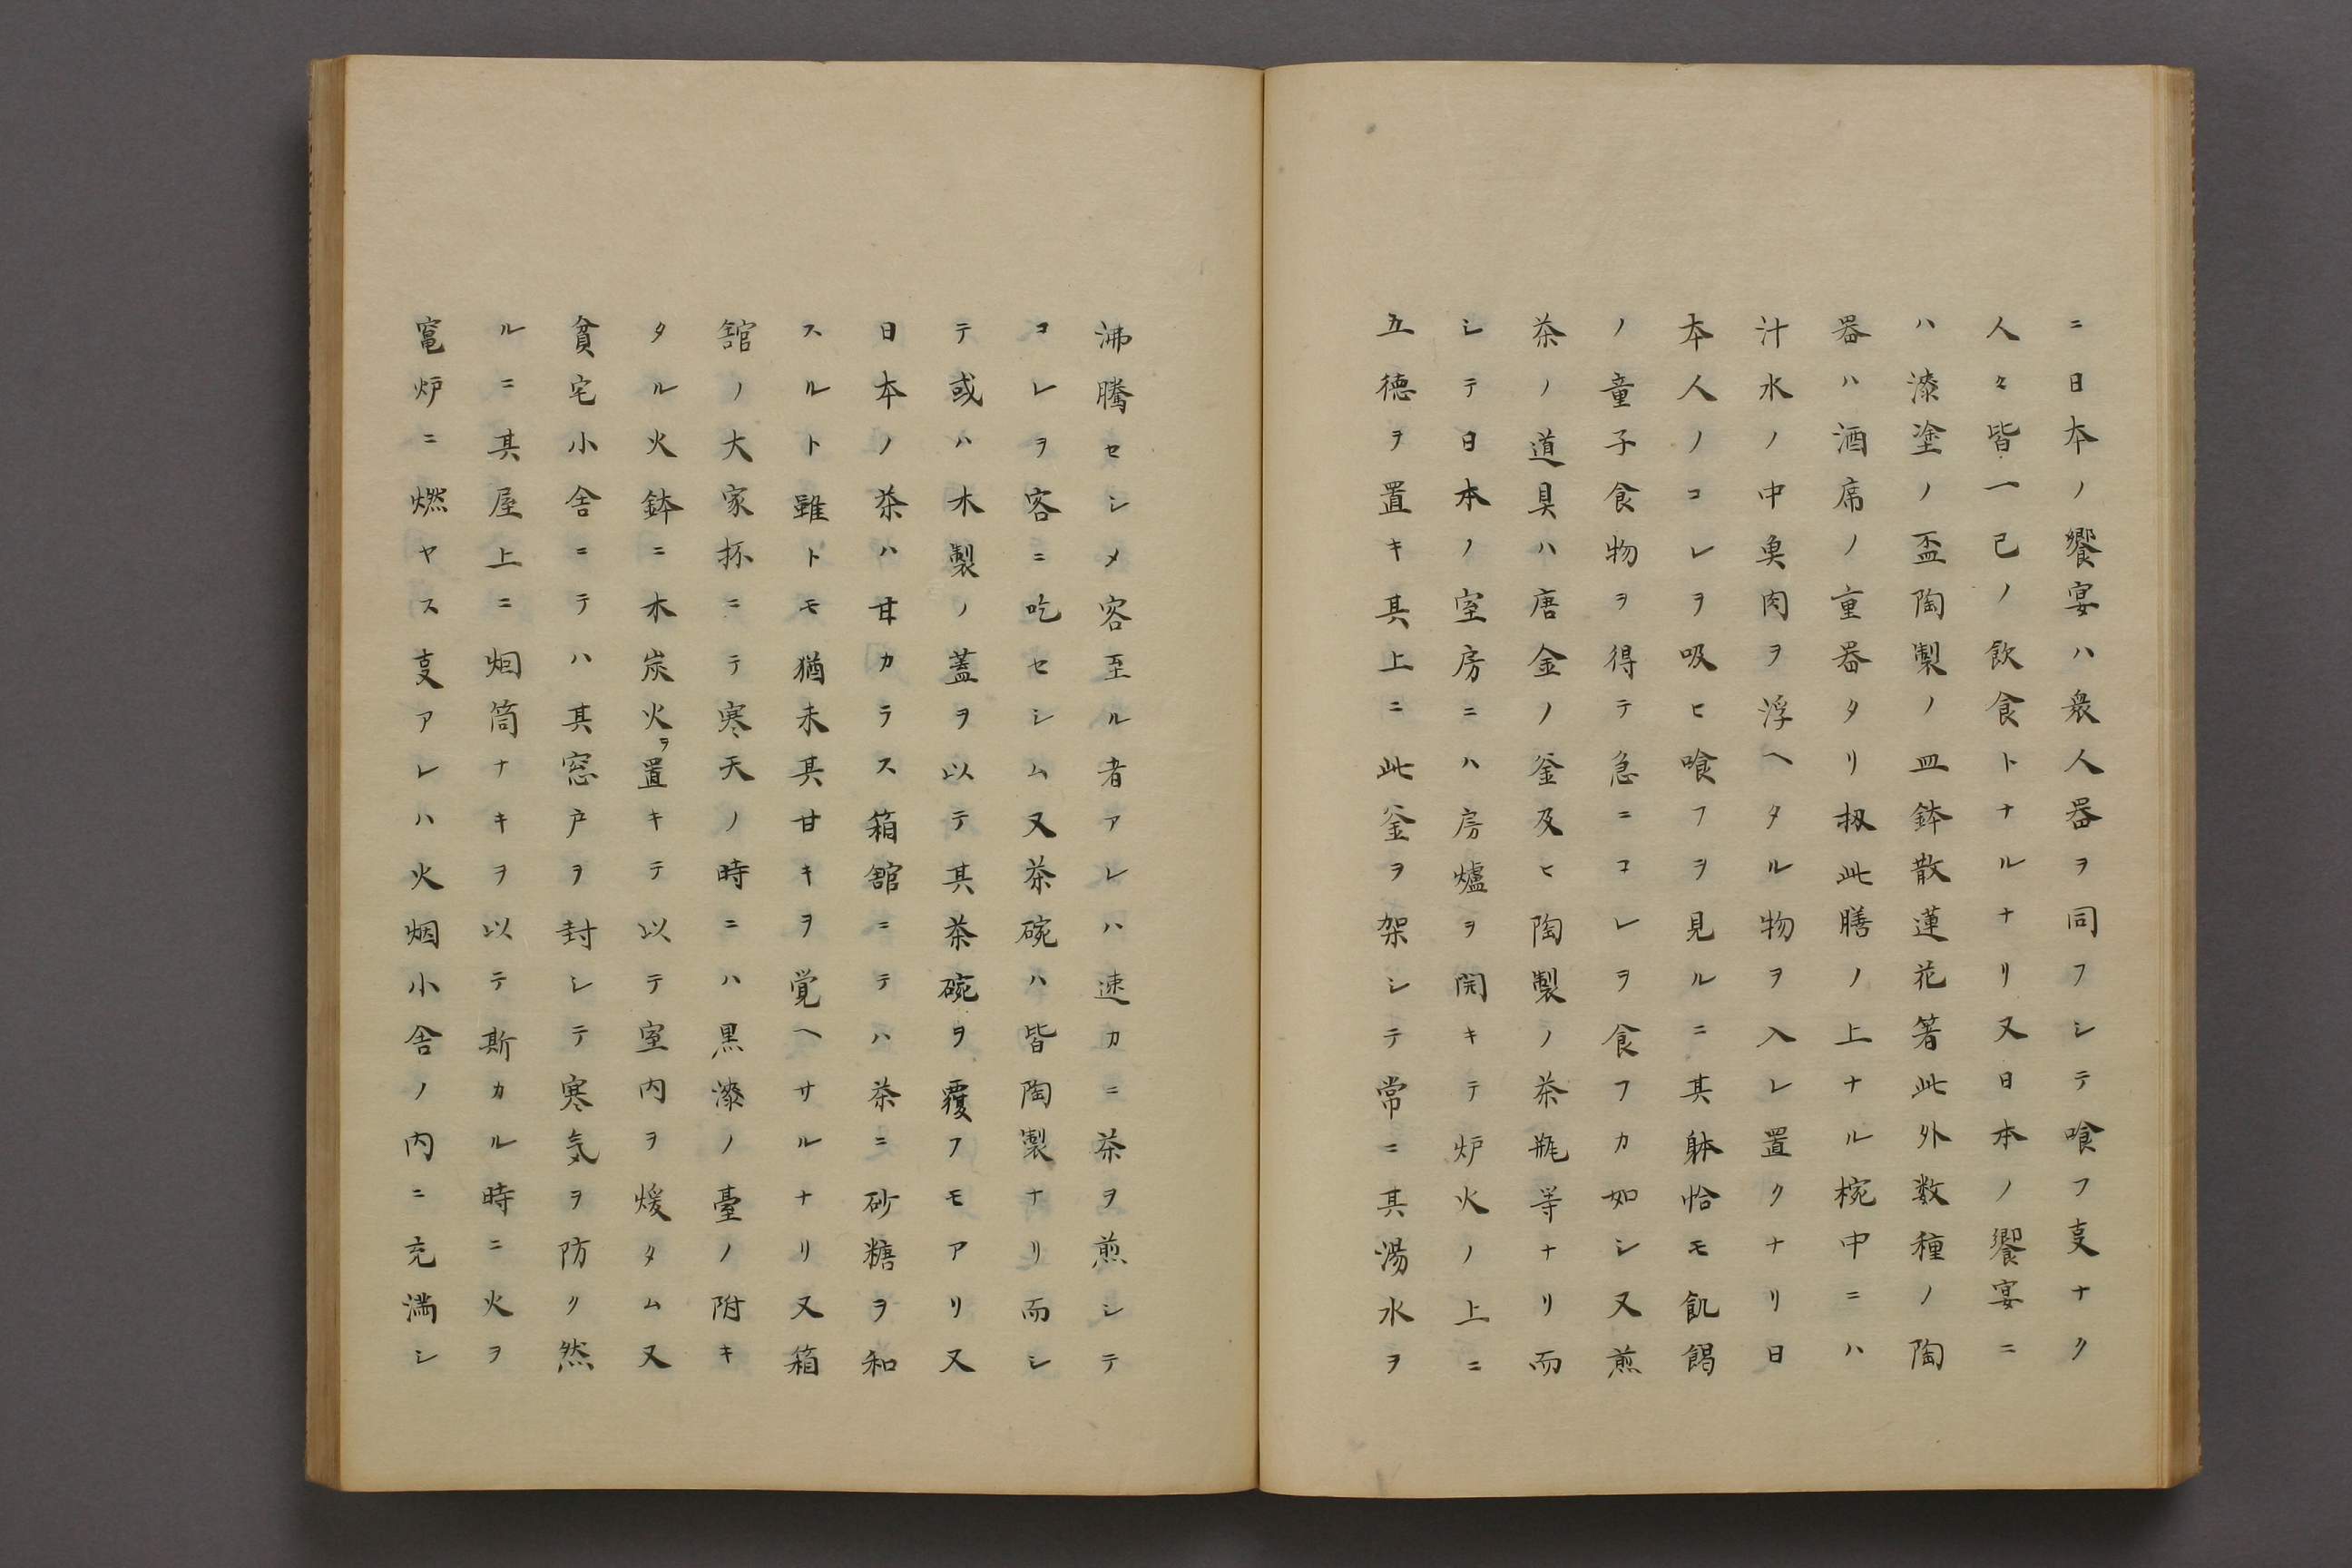 ニ日本ノ饗宴ハ衆人器ヲ同フシテ喰フ叓ナク
人々皆一己ノ飲食トナルナリ又日本ノ饗宴ニ
ハ漆塗ノ盃陶製ノ皿鉢散蓮花箸此外数種ノ陶
器ハ酒席ノ重器タリ扨此膳ノ上ナル椀中ニハ
汁水ノ中魚肉ヲ浮ヘタル物ヲ入レ置クナリ日
本人ノコレヲ吸ヒ喰フヲ見ルニ其躰恰モ飢餲
ノ童子食物ヲ得テ急ニコレヲ食フカ如シ又煎
茶ノ道具ハ唐金ノ釜及ヒ陶製ノ茶瓶等ナリ而
シテ日本ノ室房ニハ房爐ヲ開キテ炉火ノ上ニ
五徳ヲ置キ其上ニ此釜ヲ架シテ常ニ其湯水ヲ
沸騰セシメ容至ル者アレハ速カニ茶ヲ煎シテ
コレヲ客ニ吃セシム又茶碗ハ皆陶製ナリ而シ
テ或ハ木製ノ蓋ヲ以テ其茶碗ヲ覆フモアリ又
日本ノ茶ハ甘カラス箱舘ニテハ茶ニ砂糖ヲ和
スルト雖トモ猶未其甘キヲ覚ヘサルナリ又箱
舘ノ大家抔ニテ寒天ノ時ニハ黒漆ノ臺ノ附キ
タル火鉢ニ木炭火ヲ置キテ以テ室内ヲ煖タム又
貧宅小舎ニテハ其窓戸ヲ封シテ寒気ヲ防ク然
ルニ其屋上ニ烟筒ナキヲ以テ斯カル時ニ火ヲ
竃炉ニ燃ヤス叓アレハ火烟小舎ノ内ニ充満シ